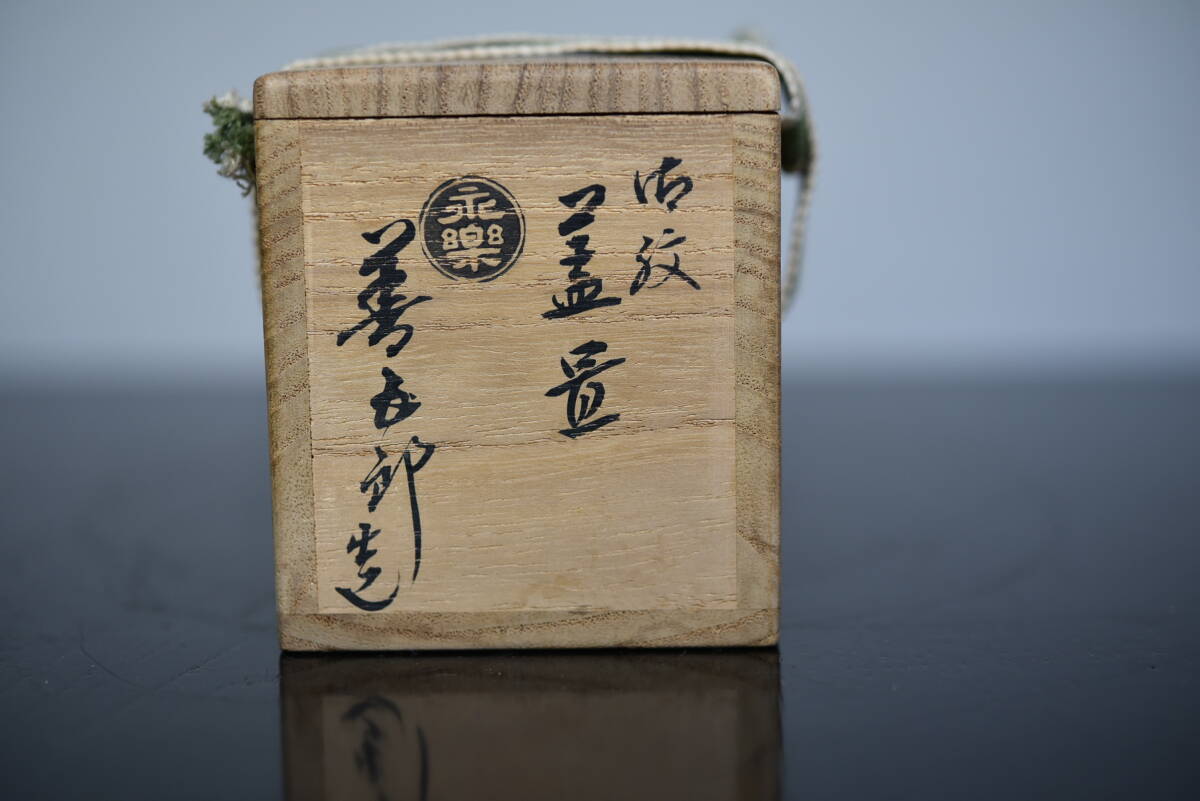 御紋
蓋置
永樂
善五郎造